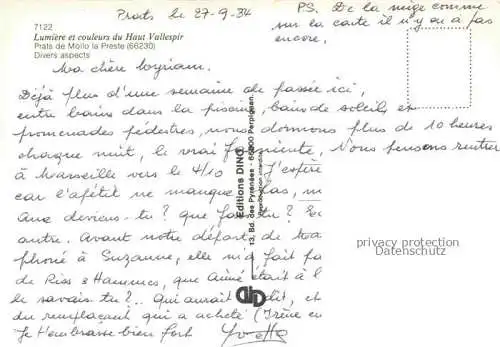 Prats le 27-9-34
PS. De la neige comme
sur la carte il n'y a pas
encore.
7122
Lumière et couleurs du Haut Vallespir
Prats de Mollo la Preste (66230)
Divers aspects
Ma chère Myriam.
Déjà plus d'une semaine de passée ici,
entre bains dans la piscine, bains de soleils et
promenades pédestres, nous dormons plus de 10 heures
chaque nuit, le vrai. Nous pensons rentrer
à Marseille vers le 4/10 J'espère
car l'apétit ne manque pas, m
Que deviens-tu? que fais-tu?
autre. Avant notre départ de
phoné à Suzanne, elle m'a fait pa
de Rias 3 Hammes, que Aimé était à l
le savais-tu?.. Qui aurait dit, et
du remplaçant qui a acheté (Irène en
Je t'embrasse bien fort Yvette
Editions DINO
13, Bd. des Pyrénées - 66000 Perpignan
Reproduction interdite
DiD
privacy protection
Datenschutz